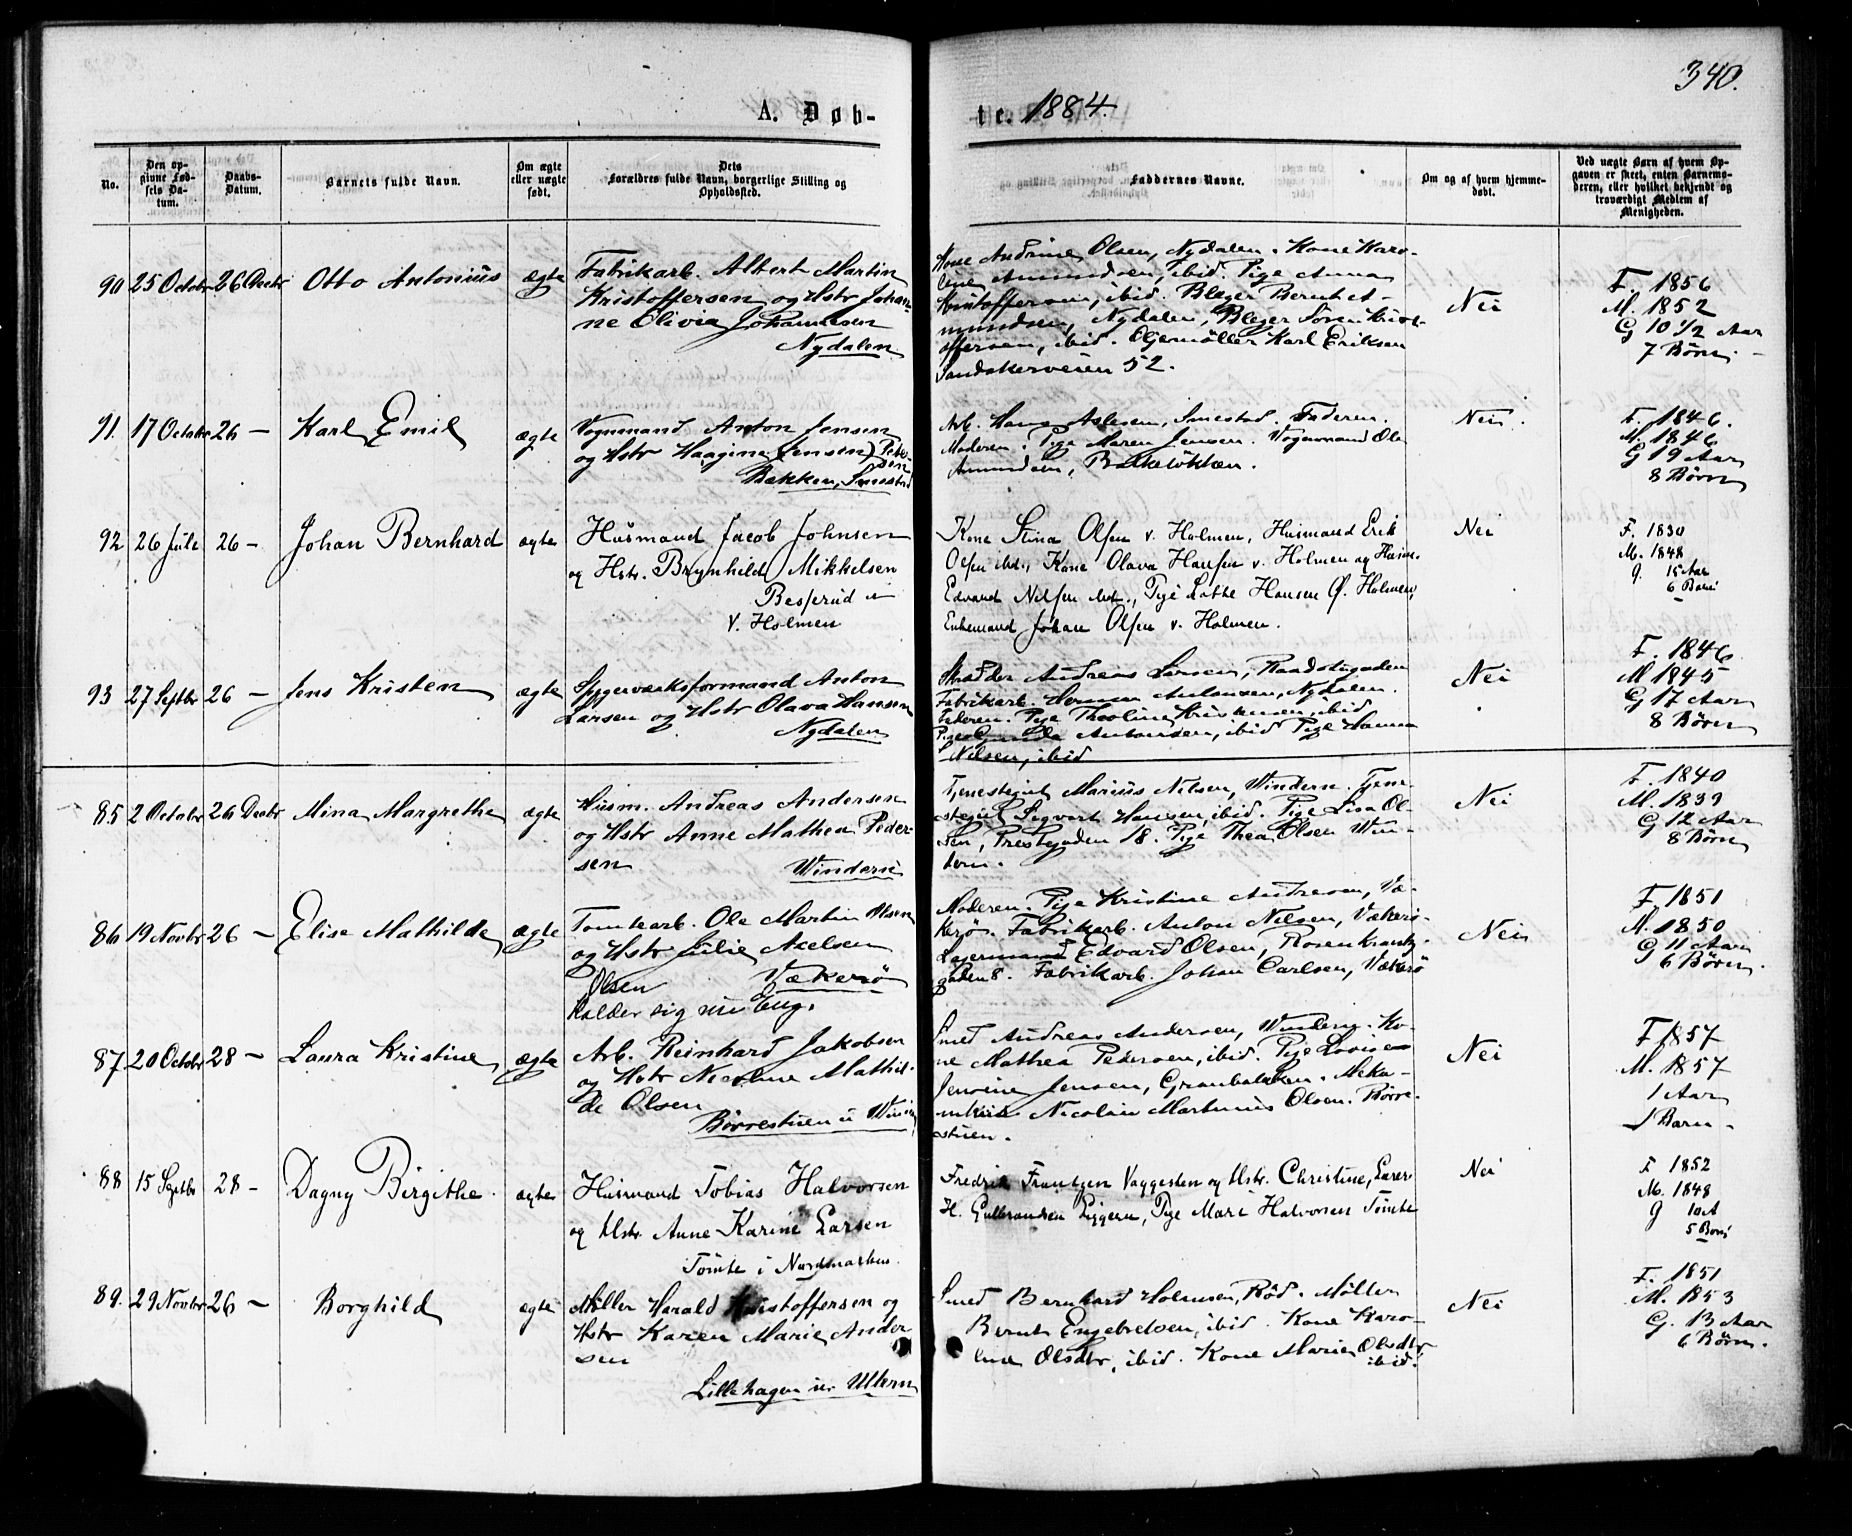 340.
A. Døb-
te. 1884.
No.
Den op-
givne Fød-
sels Da-
tum.
Daabs-
Datum.
Barnets fulde Navn.
Om ægte
eller uægte
født.
Dets
Forældres fulde Navn, borgerlige Stilling og
Opholdssted.
Faddernes Navne.
Om og af hvem hjemme-
døbt.
Ved uægte Barn af hvem Op-
gaven er skeet, enten Barnemo-
deren, eller hvilket bekjendt og
troværdigt Medlem af
Menigheden.
90 25 Octobr 26 Decbr Otto Antonius ægte
Fabrikarb. Albert Martin
Kristoffersen og Hstr Johan-
ne Olivia Johannesen
Nydalen
Kone Andrine Olsen, Nydalen. Kone Karo-
line Amundsen, ibid. Pige Anna
Kristoffersen, ibid. Bleger Bernt A-
mundsen, Nydalen, Bleger Søren Krist-
offersen, ibid. Oljemøller Karl Eriksen
Sandakerveien 52.
Nei
F. 1856
M. 1852
G 10 1/2 Aar
7 Børn.
91. 17 Octobr 26 — Karl Emil ægte
Vognmand Anton Jensen
og Hstr Haagine (Jensen) Peder-
sen
Bakken, Smestad
Arb. Hans Aslesen, Smestad. Faderen.
Moderen. Pige Maren Jensen. Vognmand Ole
Amundsen, Balkeløkken.
Nei.
F. 1846.
M. 1846
G 19 Aar
8 Børn
92 26 Juli 26 — Johan Bernhard ægte
Husmand Jacob Johnsen
og Hstr. Brynhild Mikkelsen
Besserud u
V. Holmen
Kone Stina Olsen v. Holmen, Husmand Erik
Olsen ibd., Kone Olava Hansen v. Holmen og Husm.
Edvard Nilsen ibd., Pige Lothe Hansen Ø. Holmen,
Enkemand Johan Olsen v. Holmen.
Nei
F. 1830
M. 1848
G. 15 Aar
6 Børn
93 27 Septbr 26 — Jens Kristen ægte
Byggerværksformand Anton
Larsen og Hstr Olava Hansen
Nydalen
Skrædder Andreas Larsen, Raadstugaden
Fabrikarb. Herman Antonsen, Nydalen.
Faderen. Pige Theoline Kristensen, ibid
Pige Gunda Antonsen, ibid Pige Hanna
Nilsen, ibid
Nei
F. 1846
M 1845
G 17 Aar
8 Børn
85 2 Octobr 26 Decbr Mina Margrethe ægte
Husm. Andreas Andersen
og Hstr Anne Mathea Peder-
sen
Winderen
Tjenestegut Marius Nilsen, Windern. Tjene-
stegut Sigvart Hansen, ibid. Pige Lisa Ol-
sen, Prestegaden 18. Pige Thea Olsen Win-
dern.
Nei
F. 1840
M. 1839
G 12 Aar
8 Børn
86 19 Novbr 26 — Elise Mathilde ægte
Tomtearb. Ole Martin Olsen
og Hstr Julie Axelsen
Olsen Vækerø
kalder sig nu Eng.
Moderen. Pige Kristine Andresen, Væ-
kerø. Fabrikarb. Anton Nilsen, Vækerø.
Lagermand Edvard Olsen, Rosenkrantz-
gaden 8. Fabrikarb. Johan Carlsen, Vækerø
Nei
F. 1851
M. 1850
G 11 Aar
6 Børn.
87 20 Octobr 28 — Laura Kristine ægte
Arb. Reinhard Jakobsen
og Hstr Nicoline Mathil-
de Olsen
Børrestuen u Windern
Smed Andreas Andersen, Windern. Ko-
ne Mathea Pedersen, ibid. Pige Lovise
Jensine Jensen, Granbakken. Meka-
nikus Nicolai Martinius Olsen. Børre-
stuen.
Nei
F. 1857
M. 1857
1 Aar
1 Barn
88 15 Septbr 28 — Dagny Birgithe. ægte
Husmand Tobias Halvorsen
og Hstr. Anne Karine Larsen
Tømte i Nordmarken.
Fredrik Frantzen Vaggesten og Hstr. Christine,
H. Gulbrandsen Liggern, Pige Mari Halvorsen Tømte
Nei
F 1852
M. 1848
G 10 A
5 Børn
89. 29 Novbr 26 — Borghild ægte
Møller Harald Kristoffersen og
Hstr Karen Marie Ander
sen
Lillehagen u. Ullern
Smed Bernhard Holmsen, Rød. Møller
Bernt Engebretsen, ibid. Kone Karo-
line Olsdtr, ibid. Kone Marie Olsdtr
ibid.
Nei
F. 1851
M. 1853
G. 13 Aar
6 Børn.